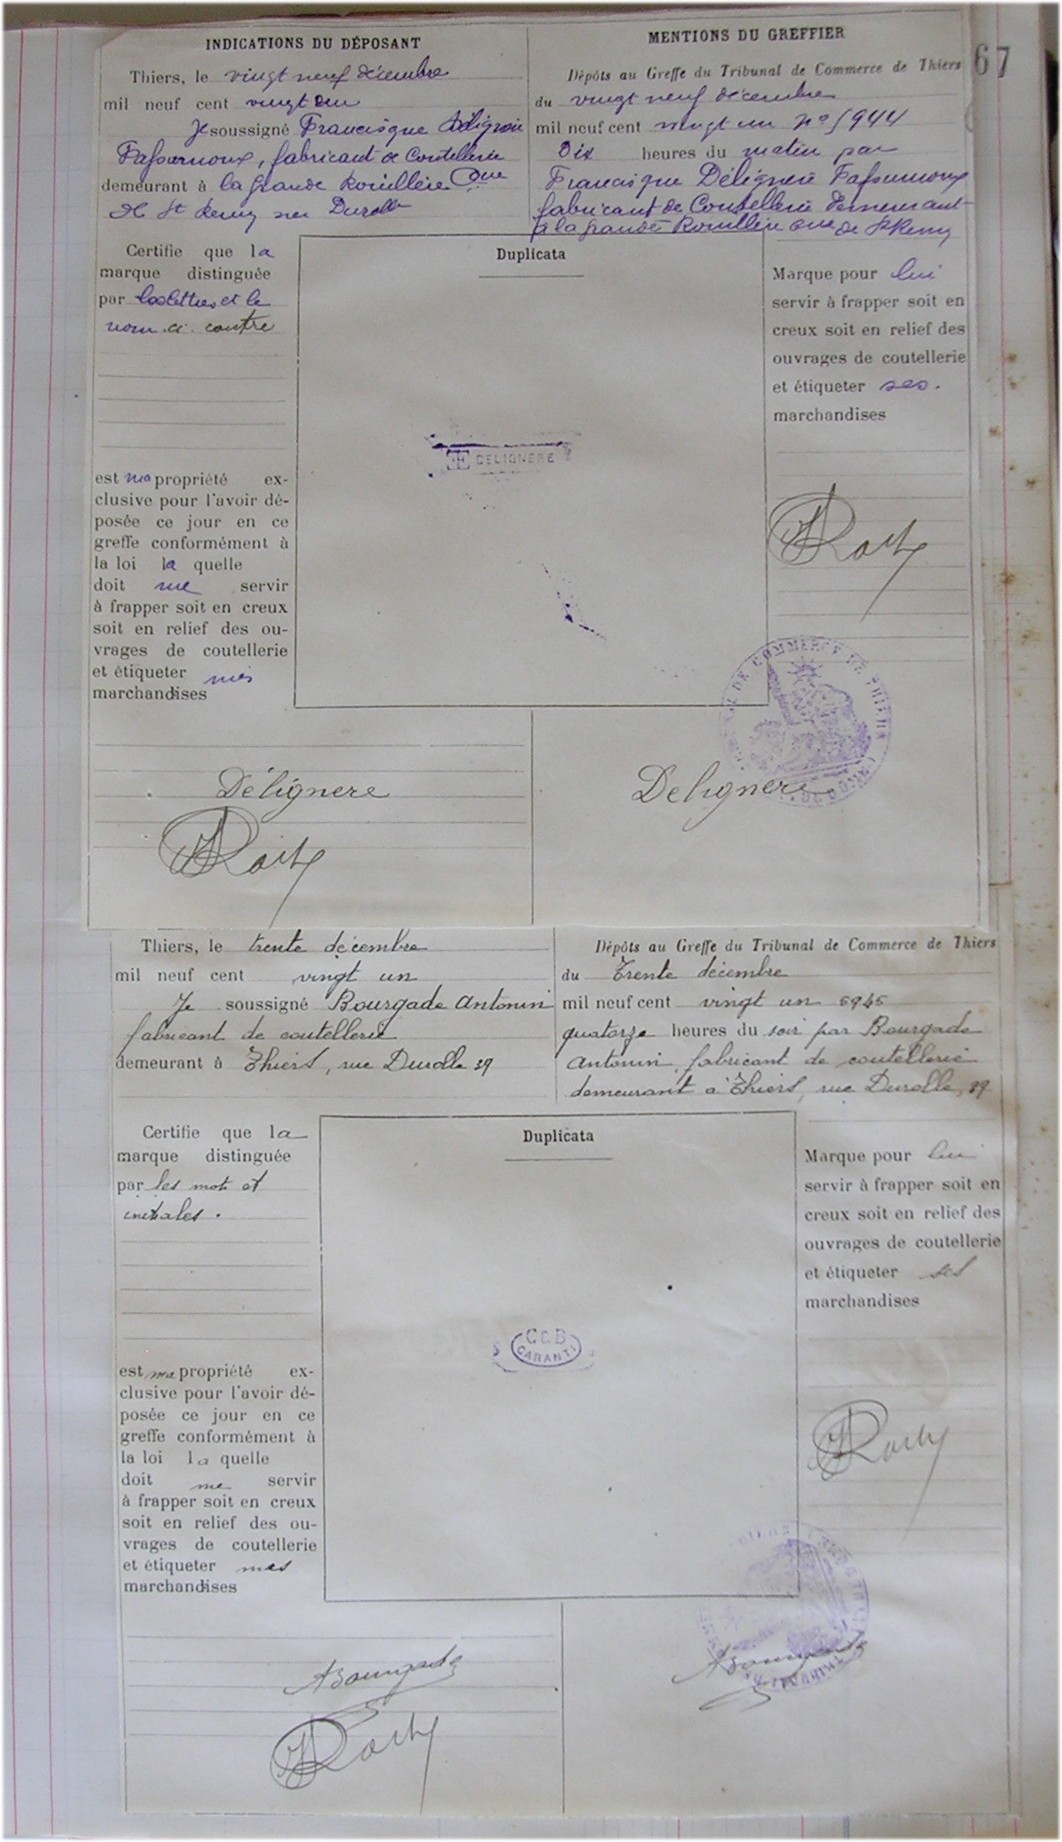 67
INDICATIONS DU DÉPOSANT
Thiers, le vingt neuf décembre
mil neuf cent vingt un
Je soussigné Francisque
fabricant de Coutellerie
demeurant à la Grande Rouillère Cne
de St Remy sur Durolle
MENTIONS DU GREFFIER
Dépôts au Greffe du Tribunal de Commerce de Thiers
du vingt neuf décembre
mil neuf cent vingt un No 5944
Dix heures du matin par
Francisque Délignere
fabricant de Coutellerie demeurant
à la grande Rouillère Cne de St Remy
Certifie que la
marque distinguée
par les lettres et le
nom ci contre
est ma propriété ex-
clusive pour l'avoir dé-
posée ce jour en ce
greffe conformément à
la loi la quelle
doit me servir
à frapper soit en creux
soit en relief des ou-
vrages de coutellerie
et étiqueter mes
marchandises
Duplicata
DELIGNERE
Marque pour lui
servir à frapper soit en
creux soit en relief des
ouvrages de coutellerie
et étiqueter ses
marchandises
DE COMMERCE DE THIERS
Délignere
Delignere
Thiers, le trente décembre
mil neuf cent vingt un
Je soussigné Bourgade Antonin
fabricant de coutellerie
demeurant à Thiers, rue Durolle 39
Dépôts au Greffe du Tribunal de Commerce de Thiers
du Trente décembre
mil neuf cent vingt un 5945
quatorze heures du soir par Bourgade
Antonin, fabricant de coutellerie
demeurant à Thiers, rue Durolle, 39
Certifie que la
marque distinguée
par les mot et
initiales.
est ma propriété ex-
clusive pour l'avoir dé-
posée ce jour en ce
greffe conformément à
la loi la quelle
doit me servir
à frapper soit en creux
soit en relief des ou-
vrages de coutellerie
et étiqueter mes
marchandises
Duplicata
GARANTI
Marque pour lui
servir à frapper soit en
creux soit en relief des
ouvrages de coutellerie
et étiqueter ses
marchandises
ABourgade
ABourgade